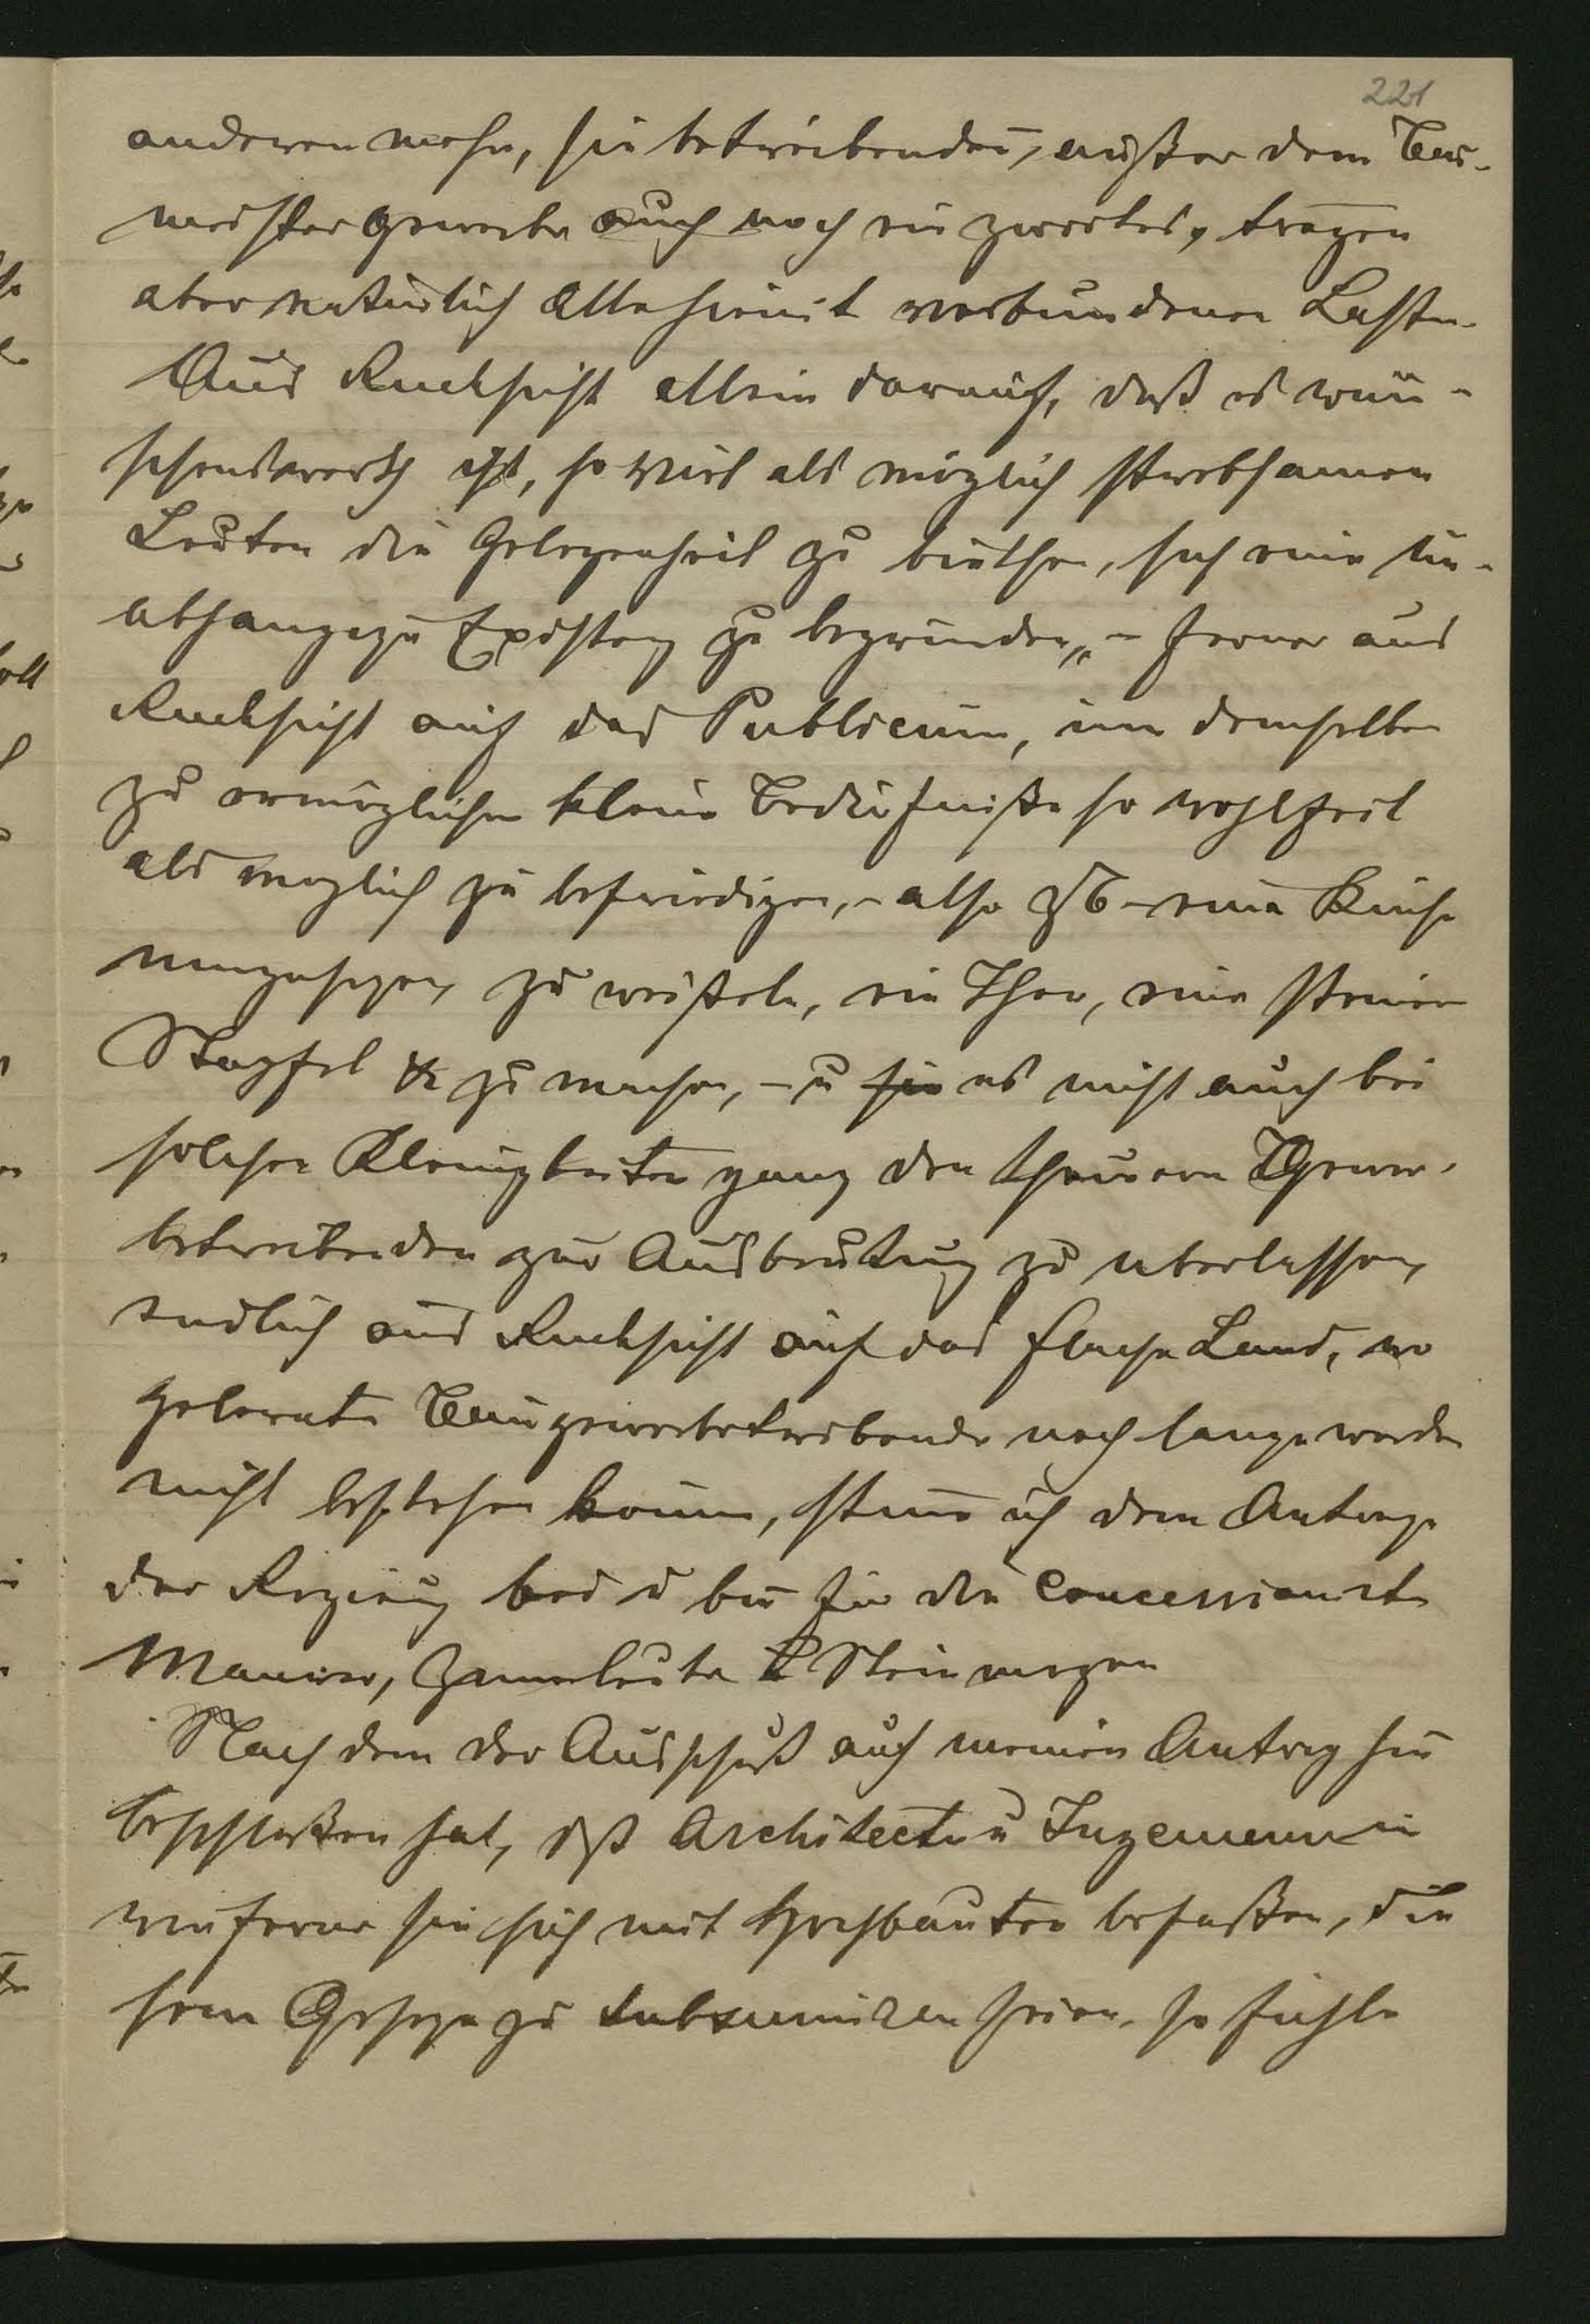 221
anderen mehr, sie betreibendn, außer dem Bau-
meistergewerbe auch noch ein zweites, tragen
aber natürlich alle hiemit verbundenen Lasten.
Aus Rucksicht allein darauf, daß es wün-
schenswerth ist, so viel als möglich strebsamen
Leuten die Gelegenheit zu biethen, sich eine un-
abhangige Existenz zu begründen, – ferner aus
Rucksicht auf das Publicum, um demselben
zu ermöglichen kleine Bedürfniße so wohlfeil
als moglich zu befriedigen, – also zB – eine Küche
zu weißeln, ein Thor, eine steinerne
Stapfel & zu machen, – u es nicht auch bei
solchen Kleinigkeiten ganz den theueren Gewer-
betreibenden zur Ausbeutung zu uberlassen,
endlich aus Rucksicht auf das flache Land, wo
gelernte Baugewerbetreibende noch lange werden
nicht bestehen konnen, stimme ich dem Antrage
der Regirung bei u bin für die concessionirte
Maurer, Zimerleute & Steinmezen
Nachdem der Ausschuß auf meinen Antrag hin
beschloßen hat, daß Architecten u Ingenieure in
wieferne sie sich mit Hochbauten befaßen, die
sem Geseze zu subsumiren seien, so fühle